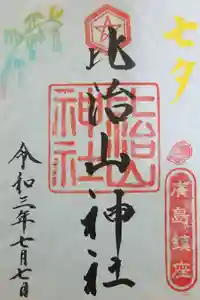 七夕
廣島鎮座
比治山神社
比治山神社
令和三年七月七日